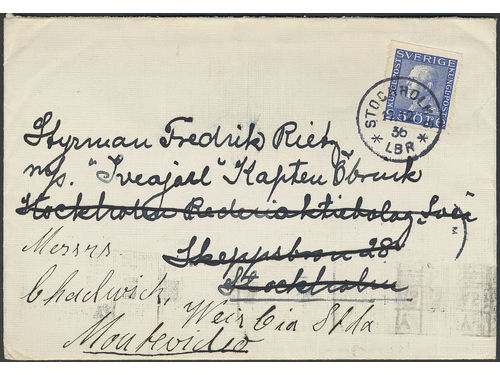 SVERIGE
25 ÖRE
STOCKHOLM
36
* LBR *
Styrman Fredrik Rietz
m/s. "Sveajarl" Kapten Öbrink
Stockholms Rederiaktiebolag Svea
Skeppsbron 28
Stockholm
Messrs
Chadwick, Weir Cia Ltda
Montevideo